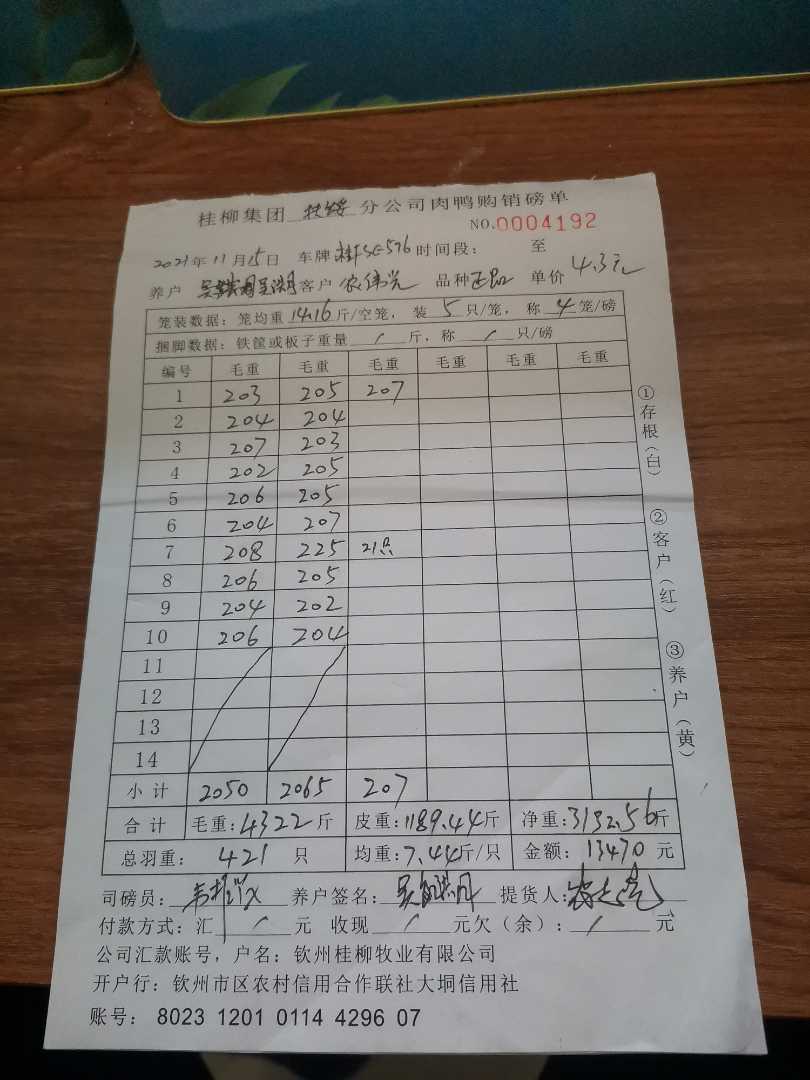 桂柳集团 扶绥 分公司肉鸭购销磅单
NO.0004192
2021年11月15日 车牌 桂F 576 时间段: 至
养户 客户 农伟光 品种 单价 4.3元
笼装数据:笼均重 14.16 斤/空笼,装 5 只/笼,称 4 笼/磅
捆脚数据:铁筐或板子重量 / 斤,称 / 只/磅
编号 毛重 毛重 毛重 毛重 毛重 毛重
1 203 205 207
2 204 204
3 207 203
4 202 205
5 206 205
6 204 207
7 208 225 21只
8 206 205
9 204 202
10 206 204
11
12
13
14
小计 2050 2065 207
合计 毛重:4322斤 皮重:1189.44斤 净重:3132.56斤
总羽重: 421 只 均重:7.44斤/只 金额: 13470 元
司磅员: 养户签名: 提货人:
付款方式:汇 / 元 收现 / 元欠(余): / 元
公司汇款账号,户名:钦州桂柳牧业有限公司
开户行:钦州市区农村信用合作联社大垌信用社
账号: 8023 1201 0114 4296 07
①存根(白) ②客户(红) ③养户(黄)